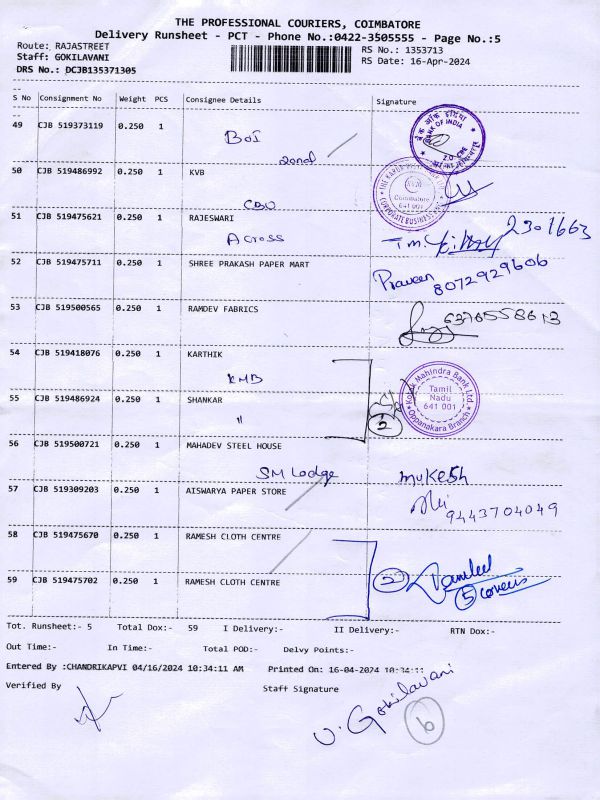 THE PROFESSIONAL COURIERS, COIMBATORE
Delivery Runsheet - PCT - Phone No.:0422-3505555 - Page No.:5
Route: RAJASTREET
RS No.: 1353713
Staff: GOKILAVANI
RS Date: 16-Apr-2024
DRS No.: DCJB135371305
S No Consignment No Weight PCS Consignee Details Signature
49 CJB 519373119 0.250 1 BOI
BANK OF INDIA
50 CJB 519486992 0.250 1 KVB
CBU
Coimbatore
641 001
CORPORATE BUSINESS
51 CJB 519475621 0.250 1 RAJESWARI
Across
2301663
52 CJB 519475711 0.250 1 SHREE PRAKASH PAPER MART
Praveen
8072929606
53 CJB 519500565 0.250 1 RAMDEV FABRICS
6376558613
54 CJB 519418076 0.250 1 KARTHIK
KMB
Kotak Mahindra Bank Ltd.
Tamil
Nadu
641 001
Oppanakara Branch
55 CJB 519486924 0.250 1 SHANKAR
"
2
56 CJB 519500721 0.250 1 MAHADEV STEEL HOUSE
SM Lodge
mukesh
57 CJB 519309203 0.250 1 AISWARYA PAPER STORE
9443704049
58 CJB 519475670 0.250 1 RAMESH CLOTH CENTRE
59 CJB 519475702 0.250 1 RAMESH CLOTH CENTRE
2
5 covers
Tot. Runsheet:- 5 Total Dox:- 59 I Delivery:- II Delivery:- RTN Dox:-
Out Time:- In Time:- Total POD:- Delvy Points:-
Entered By :CHANDRIKAPVI 04/16/2024 10:34:11 AM Printed On: 16-04-2024 10:34:11
Verified By Staff Signature
V. Gokilavani
6